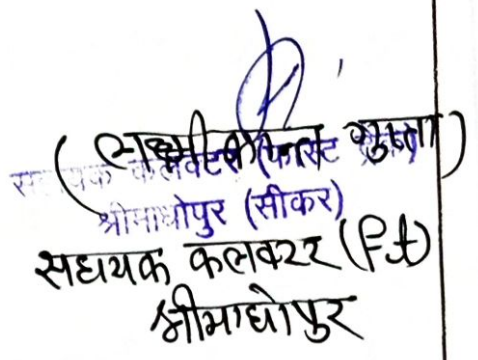 (लक्ष्मीकान्त गुप्ता)
सहायक कलक्टर (फास्ट
श्रीमाधोपुर (सीकर)
सहायक कलक्टर (F.t)
श्रीमाधोपुर